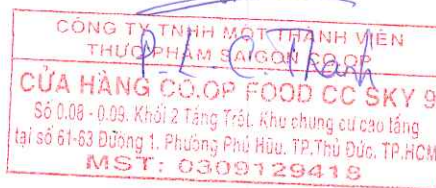 CÔNG TY TNHH MỘT THÀNH VIÊN
THỰC PHẨM SAIGON CO.OP
P.L.C.Thanh
CỬA HÀNG CO.OP FOOD CC SKY 9
Số 0.08 - 0.09. Khối 2 Tầng Trệt. Khu chung cư cao tầng
tại số 61-63 Đường 1. Phường Phú Hữu. TP.Thủ Đức. TP.HCM
MST: 0309129418